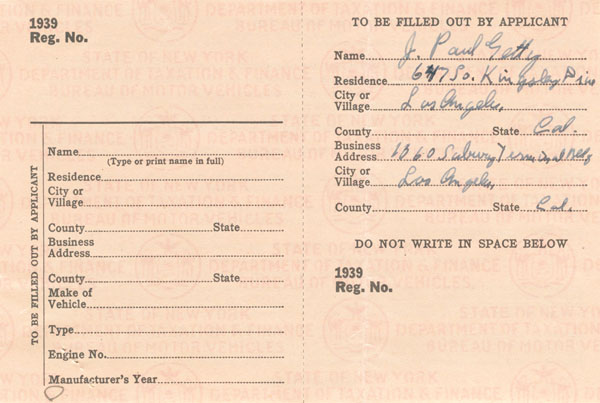 1939
Reg. No.
Name
(Type or print name in full)
Residence
City or
Village
County State
Business
Address
County State
Make of
Vehicle
Type
Engine No.
Manufacturer's Year
TO BE FILLED OUT BY APPLICANT
TO BE FILLED OUT BY APPLICANT
Name J. Paul Getty
Residence 647 So. Kingsley Drive
City or
Village Los Angeles,
County State Cal.
Business
Address 1060 Subway Terminal Bldg
City or
Village Los Angeles,
County State Cal.
DO NOT WRITE IN SPACE BELOW
1939
Reg. No.
STATE OF NEW YORK
DEPARTMENT OF TAXATION & FINANCE
BUREAU OF MOTOR VEHICLES